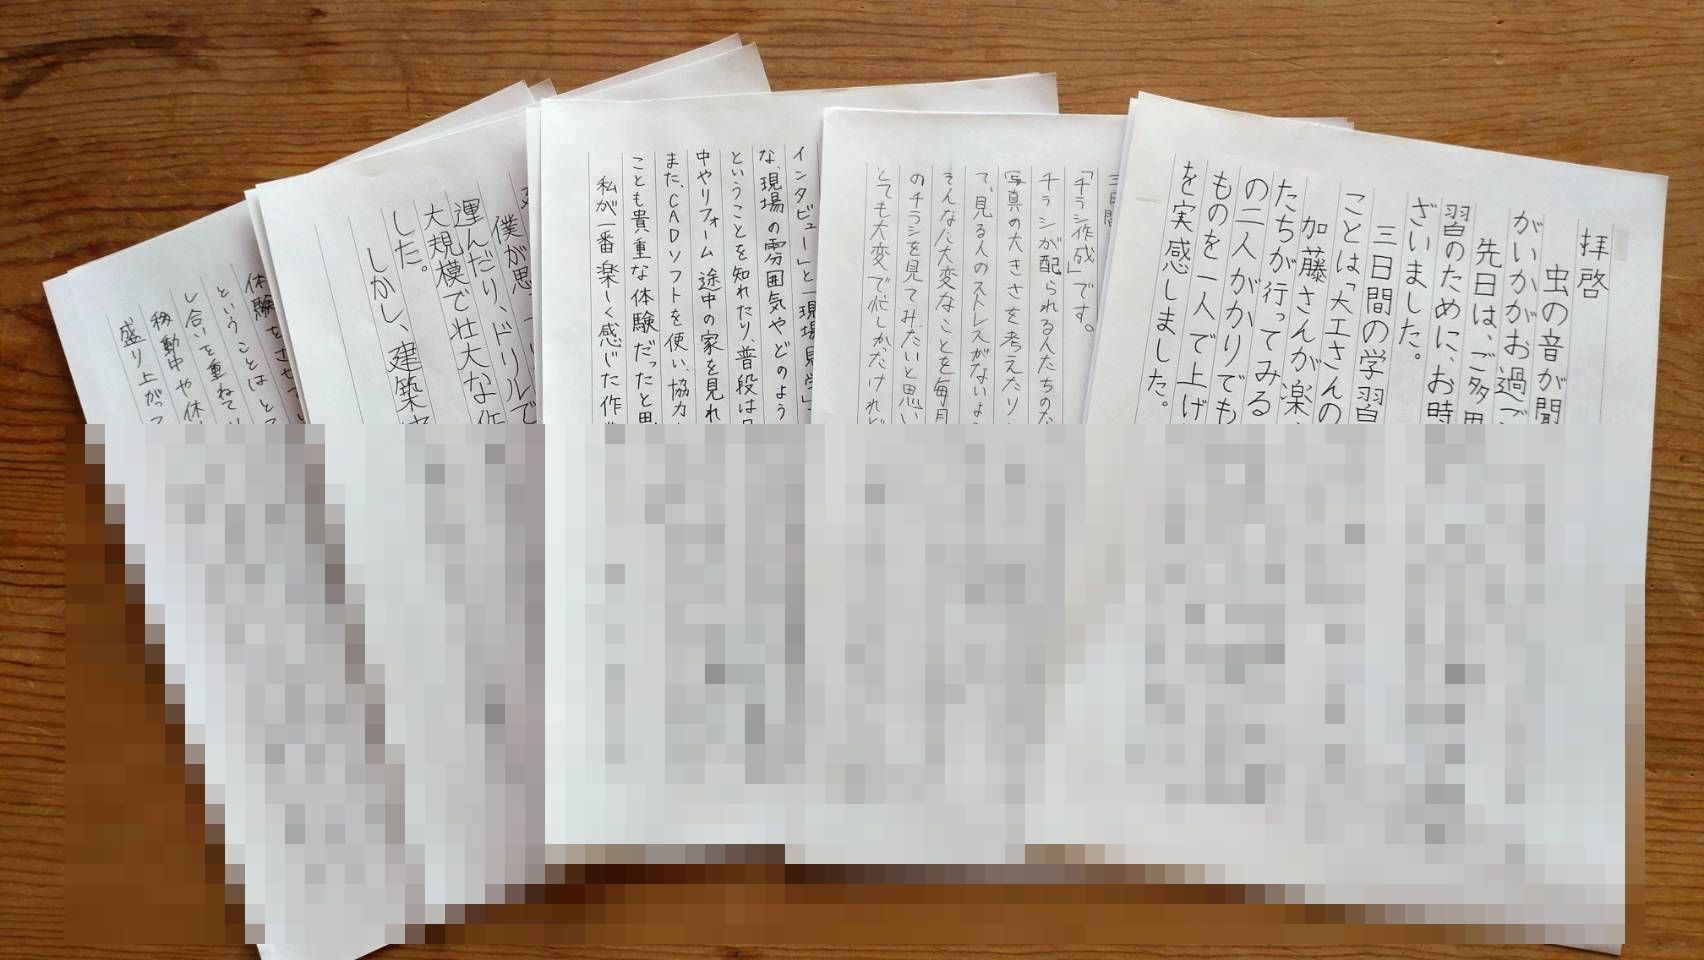 拝啓
虫の音が聞
がいかがお過ご
先日は、ご多用
習のために、お時
ざいました。
三日間の学習
ことは「大工さんの
加藤さんが楽
たちが行ってみる
の二人がかりでも
ものを一人で上げ
を実感しました。
三日間
「チラシ作成」です。
チラシが配られる人たちのな
写真の大きさを考えたり
て、見る人のストレスがないよ
そんな大変なことを毎月
のチラシを見てみたいと思い
とても大変で忙しかったけれど
インタビュー」と「現場見学」
な、現場の雰囲気やどのよう
ということを知れたり、普段は
中やリフォーム途中の家を見れ
また、CADソフトを使い、協力
ことも貴重な体験だったと思
私が一番楽しく感じた作
僕が思
運んだり、ドリルで
大規模で壮大な作
した。
しかし、建築
体験をさせて
ということはと
し合いを重ねて
移動中や休
盛り上がって